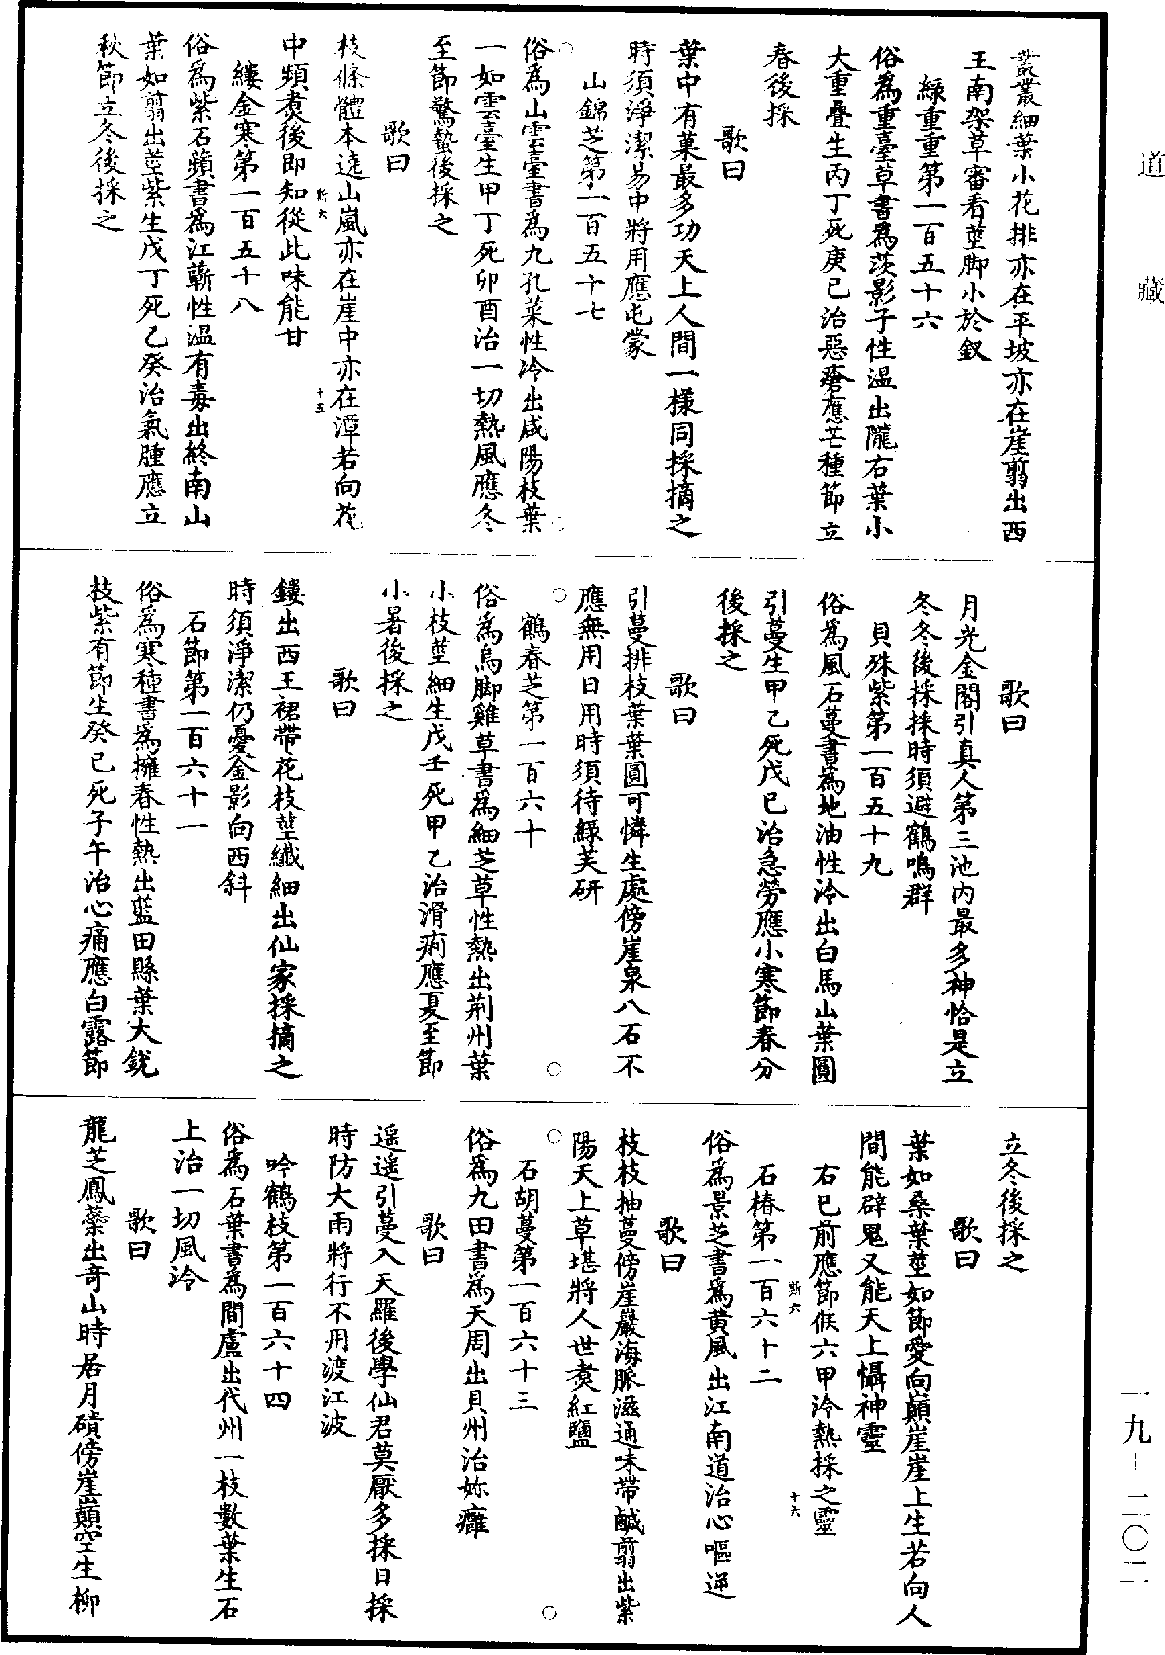 道藏
叢叢細葉小花排亦在平坡亦在崖翦出西
王南架草審看莖脚小於釵
緑重重第一百五十六
俗為重臺草書為茨影子性温出隴右葉小
大重疊生丙丁死庚巳治惡瘡應芒種節立
春後採
歌曰
葉中有菓最多功天上人間一樣同採摘之
時須淨潔易中將用應屯蒙
山錦芝第一百五十七
俗為山雲臺書為九孔菜性冷出咸陽枝葉
一如雲臺生甲丁死卯酉治一切熱風應冬
至節驚蟄後採之
歌曰
枝條體本遠山嵐亦在崖中亦在潭若向花
斯六
十五
中頻煑後即知從此味能甘
縷金寒第一百五十八
俗為紫石蘋書為江蘄性温有毒出終南山
葉如翦出莖紫生戊丁死乙癸治氣腫應立
秋節立冬後採之
歌曰
月光金閣引真人第三池内最多神恰是立
冬冬後採採時須避鶴鳴群
貝殊紫第一百五十九
俗為風石蔓書為地油性冷出白馬山葉圓
引蔓生甲乙死戊巳治急勞應小寒節春分
後採之
歌曰
引蔓排枝葉葉圓可憐生處傍崖泉八石不
應無用日用時須待緑芙研
鶴春芝第一百六十
俗為烏脚雞草書為細芝草性熱出荆州葉
小枝莖細生戊壬死甲乙治滑痢應夏至節
小暑後採之
歌曰
鏤出西王裙帶花枝莖纖細出仙家採摘之
時須淨潔仍憂金影向西斜
石節第一百六十一
俗為寒種書為擁春性熱出藍田縣葉大銳
枝紫有節生癸巳死子午治心痛應白露節
立冬後採之
歌曰
葉如桑葉莖如節愛向巔崖崖上生若向人
間能辟鬼又能天上懾神靈
右巳前應節候六甲冷熱採之靈
斯六
十六
石椿第一百六十二
俗為景芝書為黄風出江南道治心嘔逆
歌曰
枝枝抽蔓傍崖巖海脈滋通味帶鹹翦出紫
陽天上草堪將人世煑紅鹽
石胡蔓第一百六十三
俗為九田書為天周出貝州治妳癰
歌曰
遥遥引蔓入天羅後學仙君莫厭多採日採
時防大雨將行不用渡江波
吟鶴枝第一百六十四
俗為石葉書為間盧出代州一枝數葉生石
上治一切風冷
歌曰
龍芝鳳蘂出奇山時居月磧傍崖巔空生柳
一九-二〇二